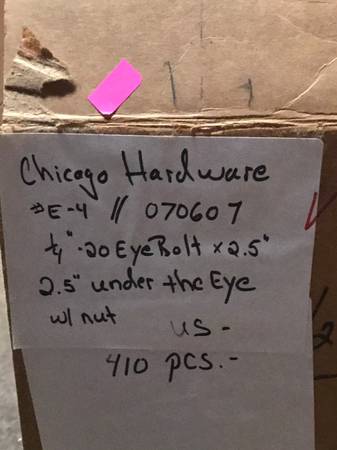 Chicago Hardware
#E-4 // 070607
1/4"-20 EyeBolt x 2.5"
2.5" under the Eye
w/ nut US -
410 pcs.-